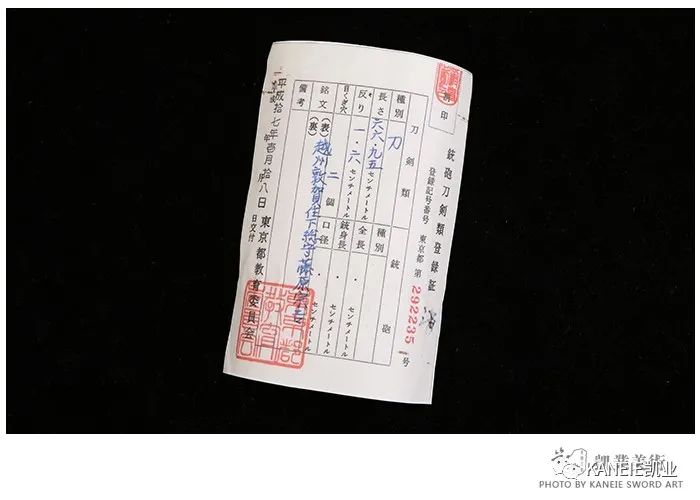 銃砲刀剣類登録証
登録記号番号 東京都 第 292235 号
刀剣類
種別 刀
長さ 六六・九五 センチメートル
反り 一・六 センチメートル
目くぎ穴 二 個
銘文 (表) 越州敦賀住下総守藤原宗吉
(裏)
備考
銃砲
種別
全長 ・ センチメートル
銃身長 ・ センチメートル
口径 ・ センチメートル
平成拾七年壱月拾八日交付
東京都教育委員会
印
凱業美術
KANEIE凯业
PHOTO BY KANEIE SWORD ART